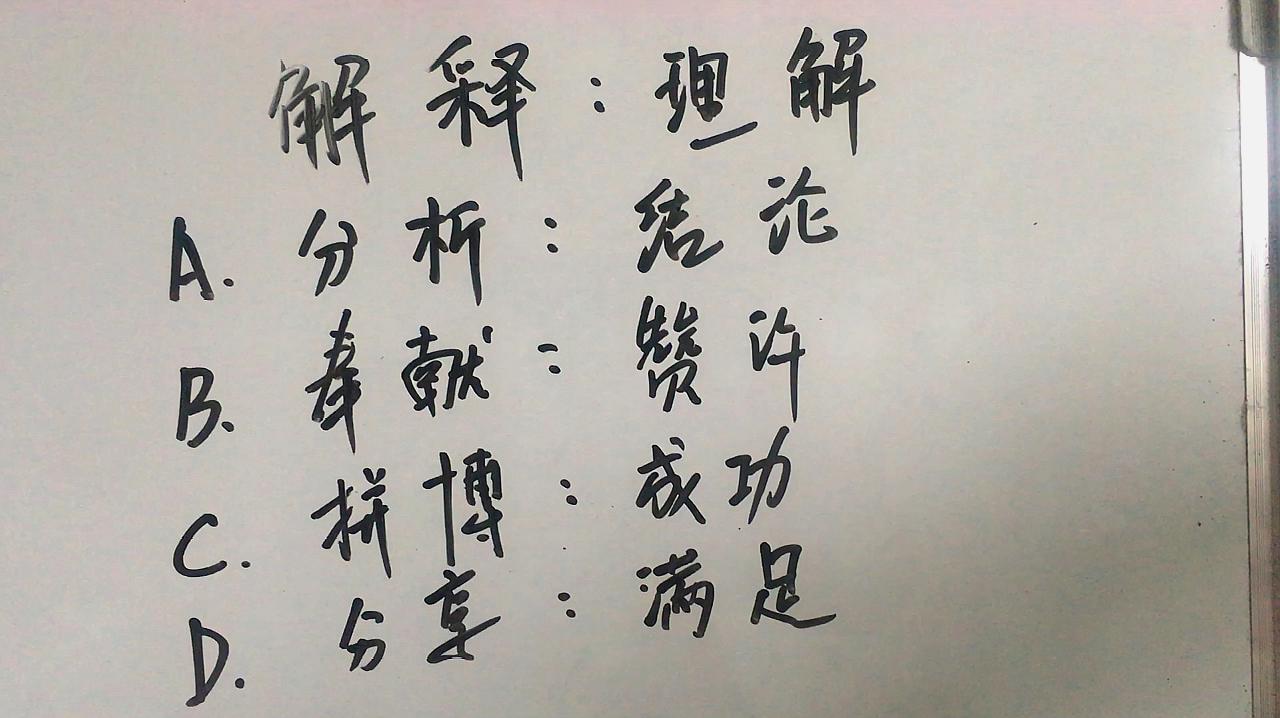 解释：理解
A. 分析：结论
B. 奉献：赞许
C. 拼博：成功
D. 分享：满足